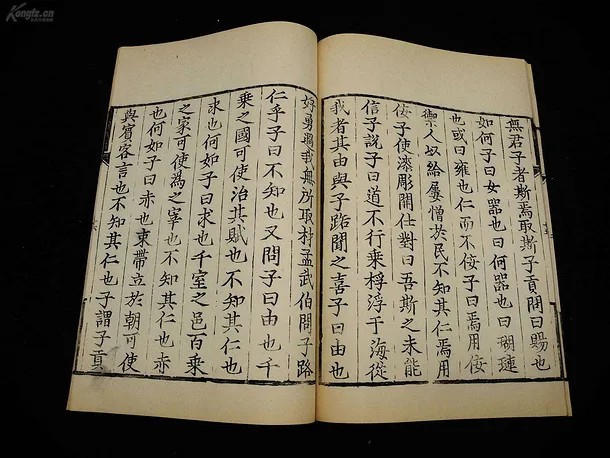 無君子者斯焉取斯子貢問曰賜也
如何子曰女器也曰何器也曰瑚璉
也或曰雍也仁而不佞子曰焉用佞
禦人以給屢憎於民不知其仁焉用
佞子使漆彫開仕對曰吾斯之未能
信子說子曰道不行乘桴浮于海從
我者其由與子路聞之喜子曰由也
好勇過我無所取材孟武伯問子路
仁乎子曰不知也又問子曰由也千
乘之國可使治其賦也不知其仁也
求也何如子曰求也千室之邑百乘
之家可使為之宰也不知其仁也赤
也何如子曰赤也束帶立於朝可使
與賓客言也不知其仁也子謂子貢
Kongfz.cn